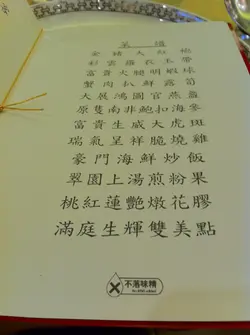 菜譜
金豬大紅袍
彩雲羅衣玉帶
富貴火腿明蝦球
蟹肉扒鮮露筍
大展鴻圖官燕羹
原隻南非鮑扣海參
富貴生威大虎斑
瑞氣呈祥脆燒雞
豪門海鮮炒飯
翠園上湯煎粉果
桃紅蓮艷燉花膠
滿庭生輝雙美點
不落味精